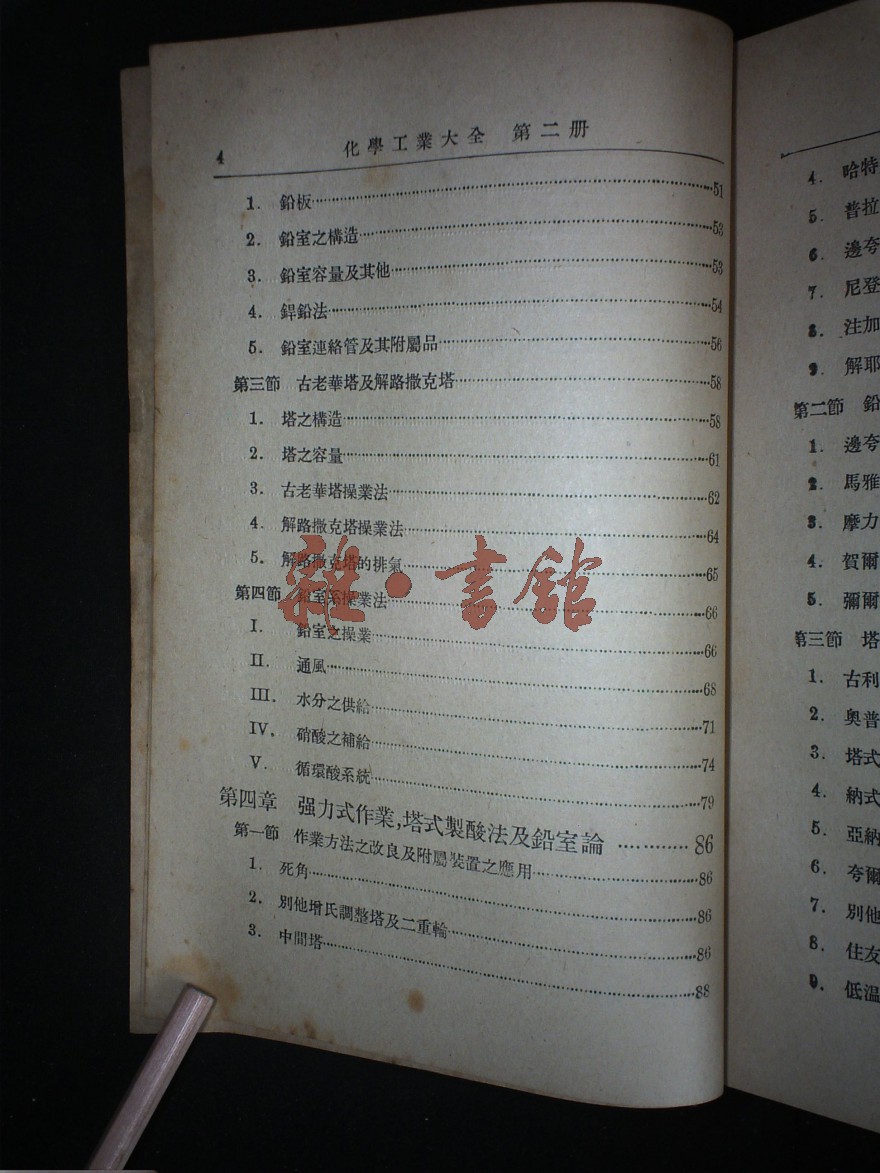 4 化學工業大全 第二册
1. 鉛板 51
2. 鉛室之構造 53
3. 鉛室容量及其他 53
4. 銲鉛法 54
5. 鉛室連絡管及其附屬品 56
第三節 古老華塔及解路撒克塔 58
1. 塔之構造 58
2. 塔之容量 61
3. 古老華塔操業法 62
4. 解路撒克塔操業法 64
5. 解路撒克塔的排氣 65
第四節 鉛室系操業法 66
I. 鉛室之操業 66
II. 通風 68
III. 水分之供給 71
IV. 硝酸之補給 74
V. 循環酸系統 79
第四章 强力式作業,塔式製酸法及鉛室論 86
第一節 作業方法之改良及附屬裝置之應用 86
1. 死角 86
2. 別他增氏調整塔及二重輪 86
3. 中間塔 88
雜·書館
4. 哈特
5. 普拉
6. 邊夸
7. 尼登
8. 注加
9. 解耶
第二節 鉛
1. 邊夸
2. 馬雅
3. 摩力
4. 賀爾
5. 彌爾
第三節 塔
1. 古利
2. 奧普
3. 塔式
4. 納式
5. 亞納
6. 夸爾
7. 別他
8. 住友
9. 低温